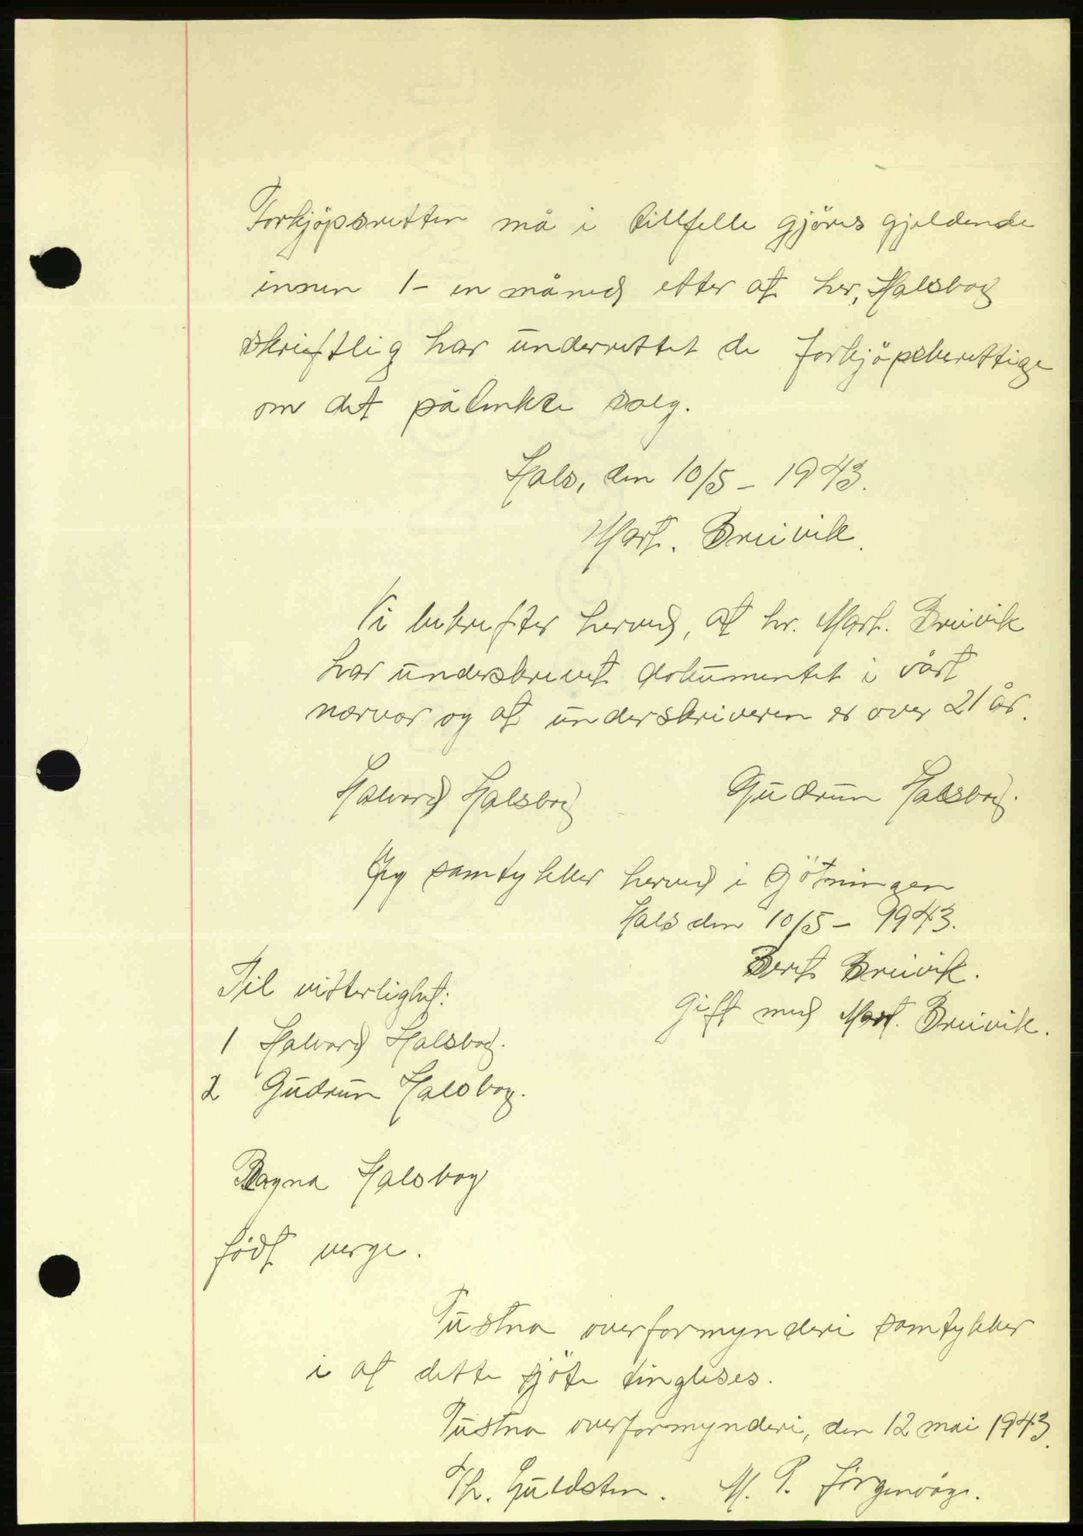 Forkjöpsretten må i tillfelle gjöres gjeldende
innen 1- en måned etter at hr. Halsbog
skriftlig har underrettet de forkjöpsberettige
om det påtenkte salg.
Hals, den 10/5 - 1943.
Mart. Breivik.
Vi bekrefter herved, at hr. Mart. Breivik
har underskrevet dokumentet i vårt
nærvær og at underskriveren er over 21 år.
Halvard Halsbog Gudrun Halsbog.
Jeg samtykker herved i sjötningen
Hals den 10/5 - 1943.
Berit Breivik.
Gift med Mart. Breivik.
Til vitterlighet:
1 Halvard Halsbog.
2 Gudrun Halsbog.
Ragna Halsbog
födt verge.
Tustna overformynderi samtykker
i at dette sjöte tingleses.
Tustna overformynderi, den 12 mai 1943.
Th. Guldsten. M. P. Jörgenvåg.